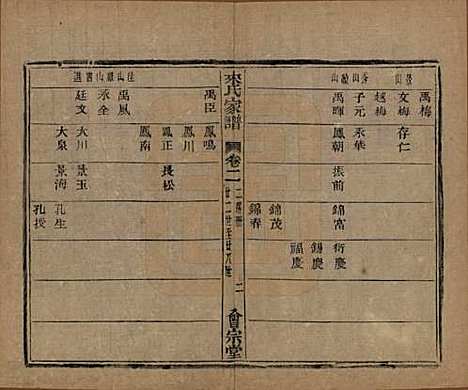 禹梅
文梅 存仁
越梅
子元 承華
禹暉 鳳朝 振前 錦富 衍慶
錫慶
福慶
錦茂
錦春
來氏家譜 卷二 會宗堂
禹臣 鳳鳴
鳳川
鳳正 長松
鳳南
禹風
承全 大川 景玉 孔生
廷文 大泉 景海 孔授